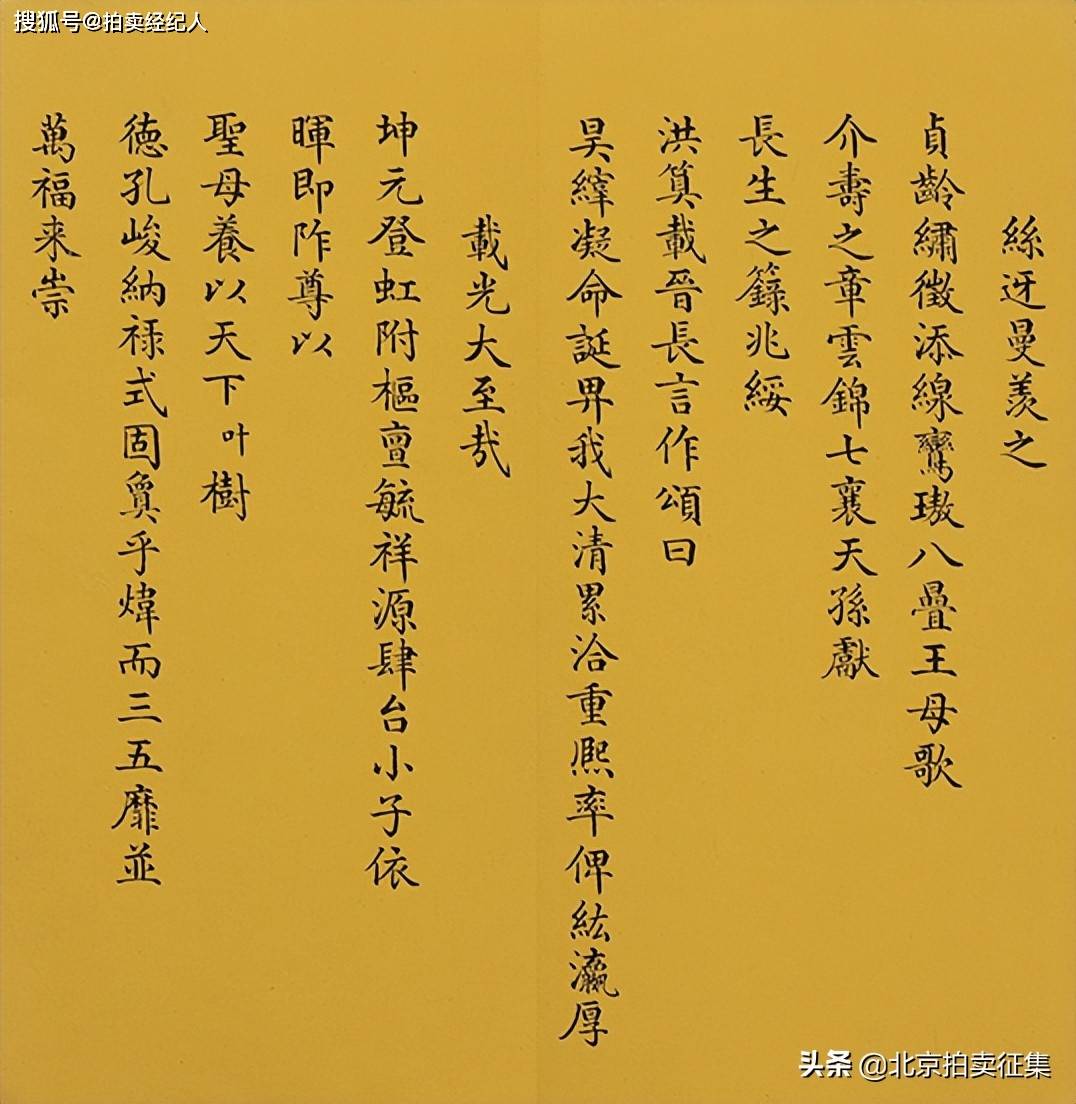 搜狐号@拍卖经纪人
絲迓曼羨之
貞齡繡徵添線鸞璈八疊王母歌
介壽之章雲錦七襄天孫獻
長生之籙兆綏
洪算載晉長言作頌曰
昊縡凝命誕畀我大清累洽重熙率俾紘瀛厚
載光大至哉
坤元登虹附樞亶毓祥源肆台小子依
暉即阼尊以
聖母養以天下叶樹
德孔峻納祿式固奠乎煒而三五靡並
萬福来崇
头条 @北京拍卖征集